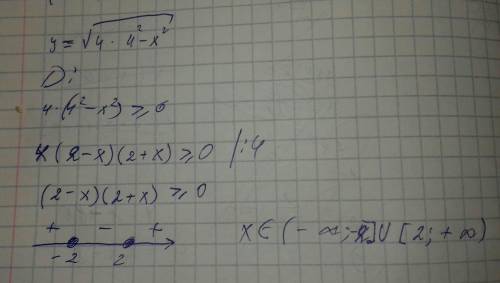 y = √4 · 4² - x²
D:
4 · (4² - x²) ≥ 0
4(2-x)(2+x) ≥ 0 /:4
(2-x)(2+x) ≥ 0
+ - +
-2 2
x ∈ (-∞; -2] ∪ [2; +∞)